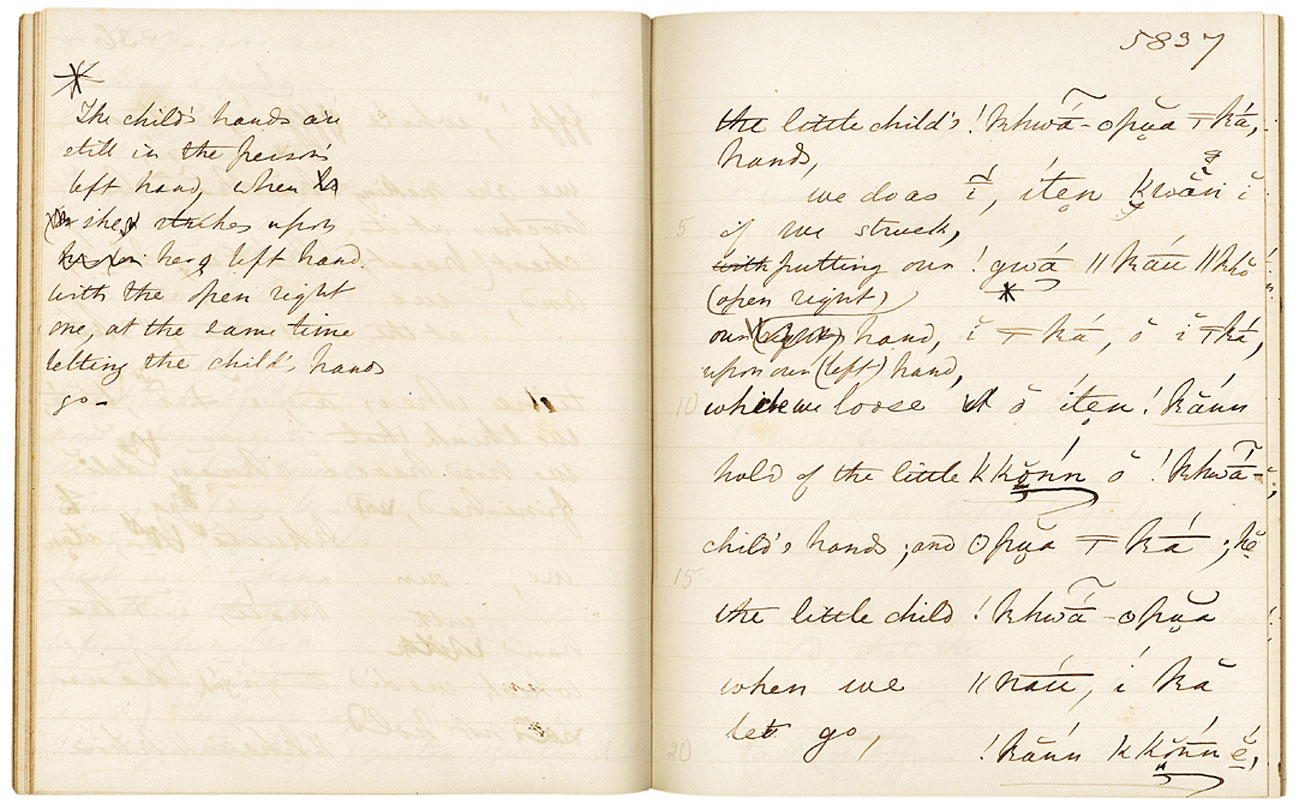 The child's hands are
still in the person's
left hand, when
she strikes upon
her left hand.
with the open right
one, at the same time
letting the child's hands
go—
5837
the little child's !khwã́-ʘpŭa ǂká,
hands,
we do as ī, íten
if we struck, 5
with putting our !gwá ǁkáú ǁkhŏ
(open right)
our hand, ĭ ǂká, ŏ ĭ ǂká,
upon our (left) hand,
while we loose ŏ íten !kắnn 10
hold of the little kkŏ́nn ŏ !khwã́-
child's hands; and ʘpŭa ǂká; kĕ
15
the little child !khwã́-ʘpŭa
when we ǁkáú, í kă
let go,
!kắnn kkŏ́nn ĕ́, 20